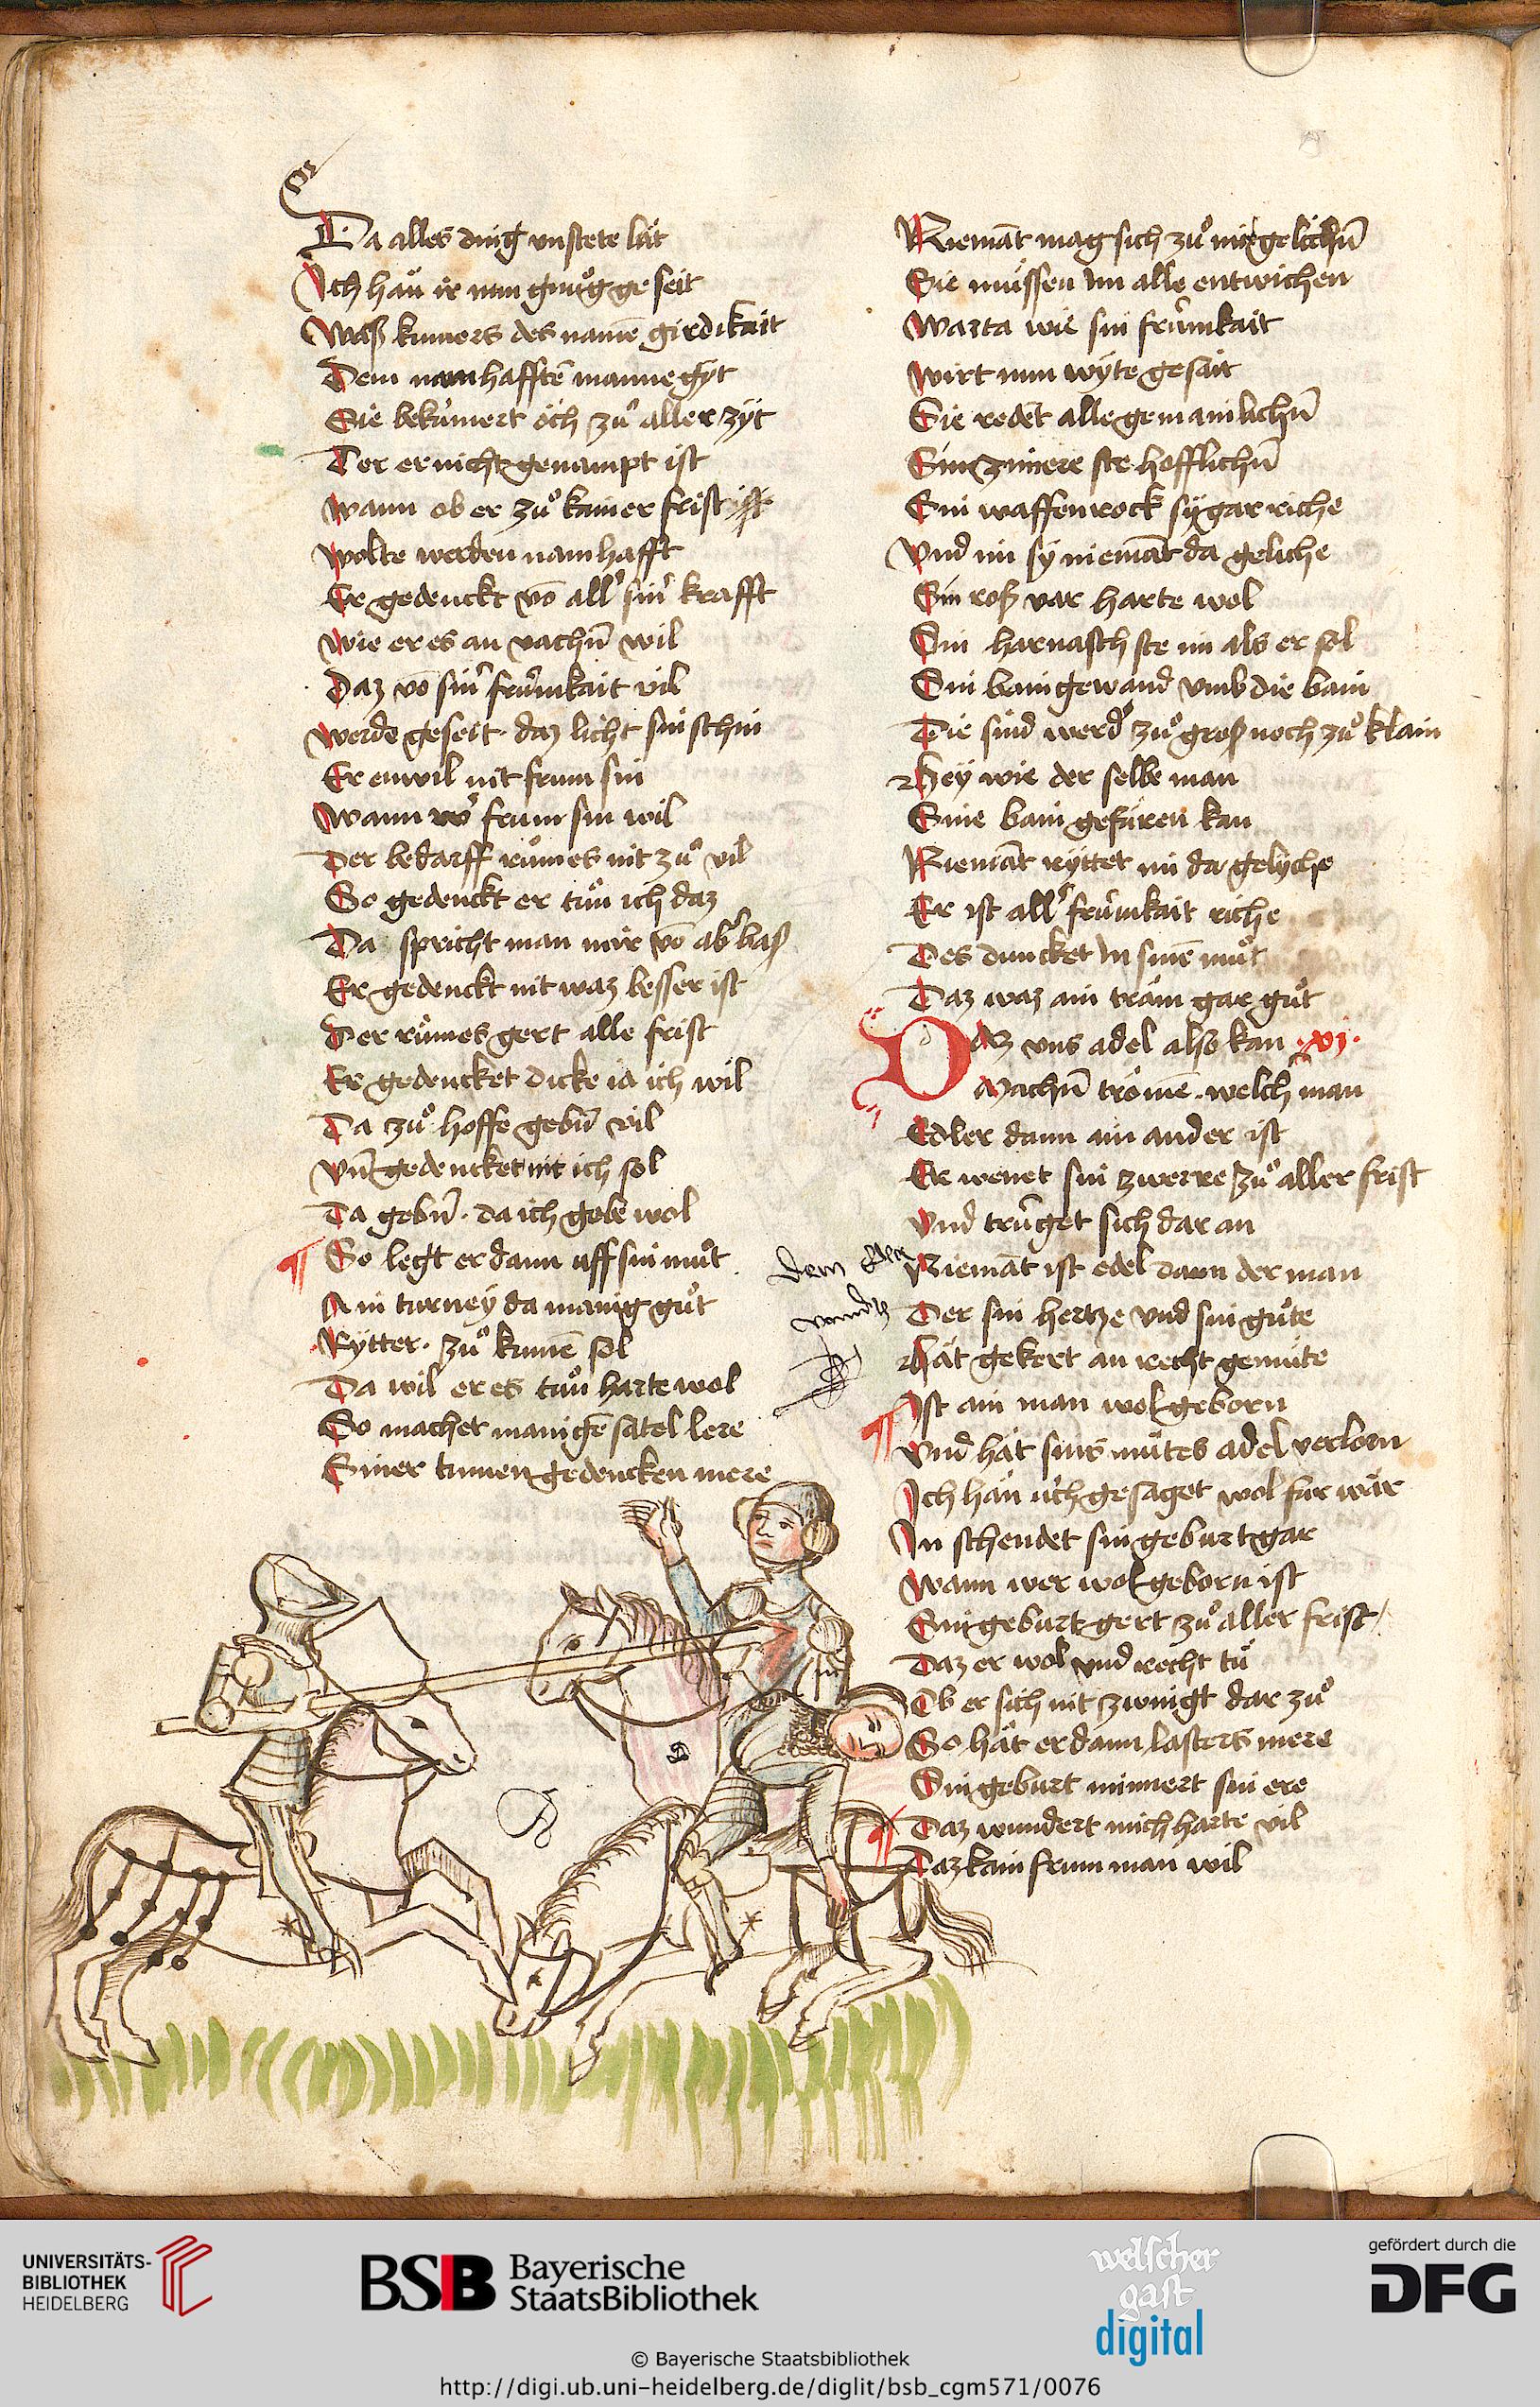 Da alles ding vnstete lät
Ich haů ir nun gnůg geseit
Waß kumers des namē girdikait
Dem namhafftē manne gÿt
Sie bekům̄ert öch zů aller zÿt
Der er nicht genampt ist
wann ob er zů kainer frist ist
wolte werden namhafft
Er gedenckt vō all' sin' krafft
wie er es an vachn̄ wil
Daz vō sin' frům̄kait vil
werde geseit · daz licht sin schin
Er enwil nit frum sin
Wann w' frum sin wil
Der bedarff růmes nit zů vil
So gedenckt er tůn ich daz
Da spricht man mir vō ab' baß
Er gedenckt nit waz besser ist
Der růmes gert alle frist
Er gedencket dicke ia ich wil
Da zů hoffe gebn̄ vil
vn̄ gedencket nit ich sol
Da gebn̄ · da ich gebe wol
¶ So legt er dann uff sin můt
Ain turney da manig gůt
Rÿtter · zů kumē sol
Da wil er es tůn harte wol
So machet manigē satel lere
Siner tumen gedencken mere
Niemāt mag sich zů mir gelichn̄
Sie müssen im alle entwichen
warta wie sin frům̄kait
wirt nun wÿte gesait
Sie redēt alle gemainlichn̄
Sin zimere ste hofflichn̄
Sin waffenrock sÿ gar riche
Vnd im sÿ niemāt da geliche
Sin roß var harte wol
Sin harnasch ste im als er sol
Sin baingewand vmb die bain
Die sind wed' zů groß noch zů klain
Hey wie der selbe man
Sine bain gefüren kan
Niemāt rÿttet im da gelÿche
Er ist all' frům̄kait riche
Des duncket in sinē můt
Daz waz ain träm gar gůt
DAz vns adel also kan · vj ·
Machn̄ trömē · welch man
Edler dann ain ander ist
Er wenet sin zwerre zů aller frist
Vnd trůget sich dar an
Niemāt ist edel dann der man
Der sin hertze vnd sin gůte
Hät gekert an recht gemůte
Ist ain man wol geborn
¶ Vnd hät sins můtes adel verlorn
Ich hän üch gesaget wol für wär
In schendet sin geburt gar
Wann wer wol geborn ist
Sin geburt gert zů aller frist
Daz er wol vnd recht tů
Ob er sich nit zwingt dar zů
So hät er dann lasters mere
Sin geburt minnert sin ere
¶ Daz wundert mich harte vil
Daz kain frum man wil
UNIVERSITÄTS-
BIBLIOTHEK
HEIDELBERG
BSB Bayerische
StaatsBibliothek
welscher
gast
digital
gefördert durch die
DFG
© Bayerische Staatsbibliothek
http://digi.ub.uni-heidelberg.de/diglit/bsb_cgm571/0076